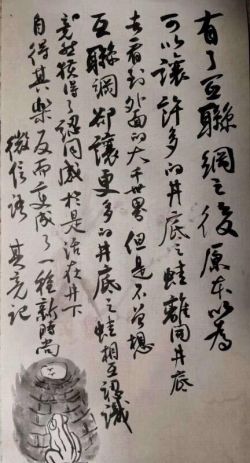 有了互聯網之後原本以為
可以讓許多的井底之蛙離開井底
去看到外面的大千世界但是不曾想
互聯網卻讓更多的井底之蛙相互認識
竟然獲得了認同感於是活在井下
自得其樂反而變成了一種新時尚
微信語 其亮記